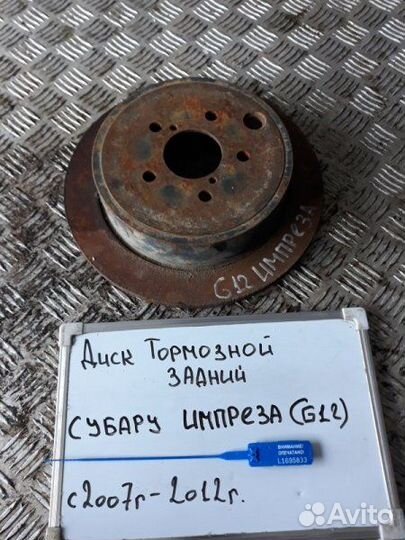 G12 ИМПРЕЗА
Диск Тормозной
ЗАДНИЙ
СУБАРУ ИМПРЕЗА (G12)
ВНИМАНИЕ!
ОПЕЧАТАНО!
L1695833
с 2007г - 2012г.
Avito